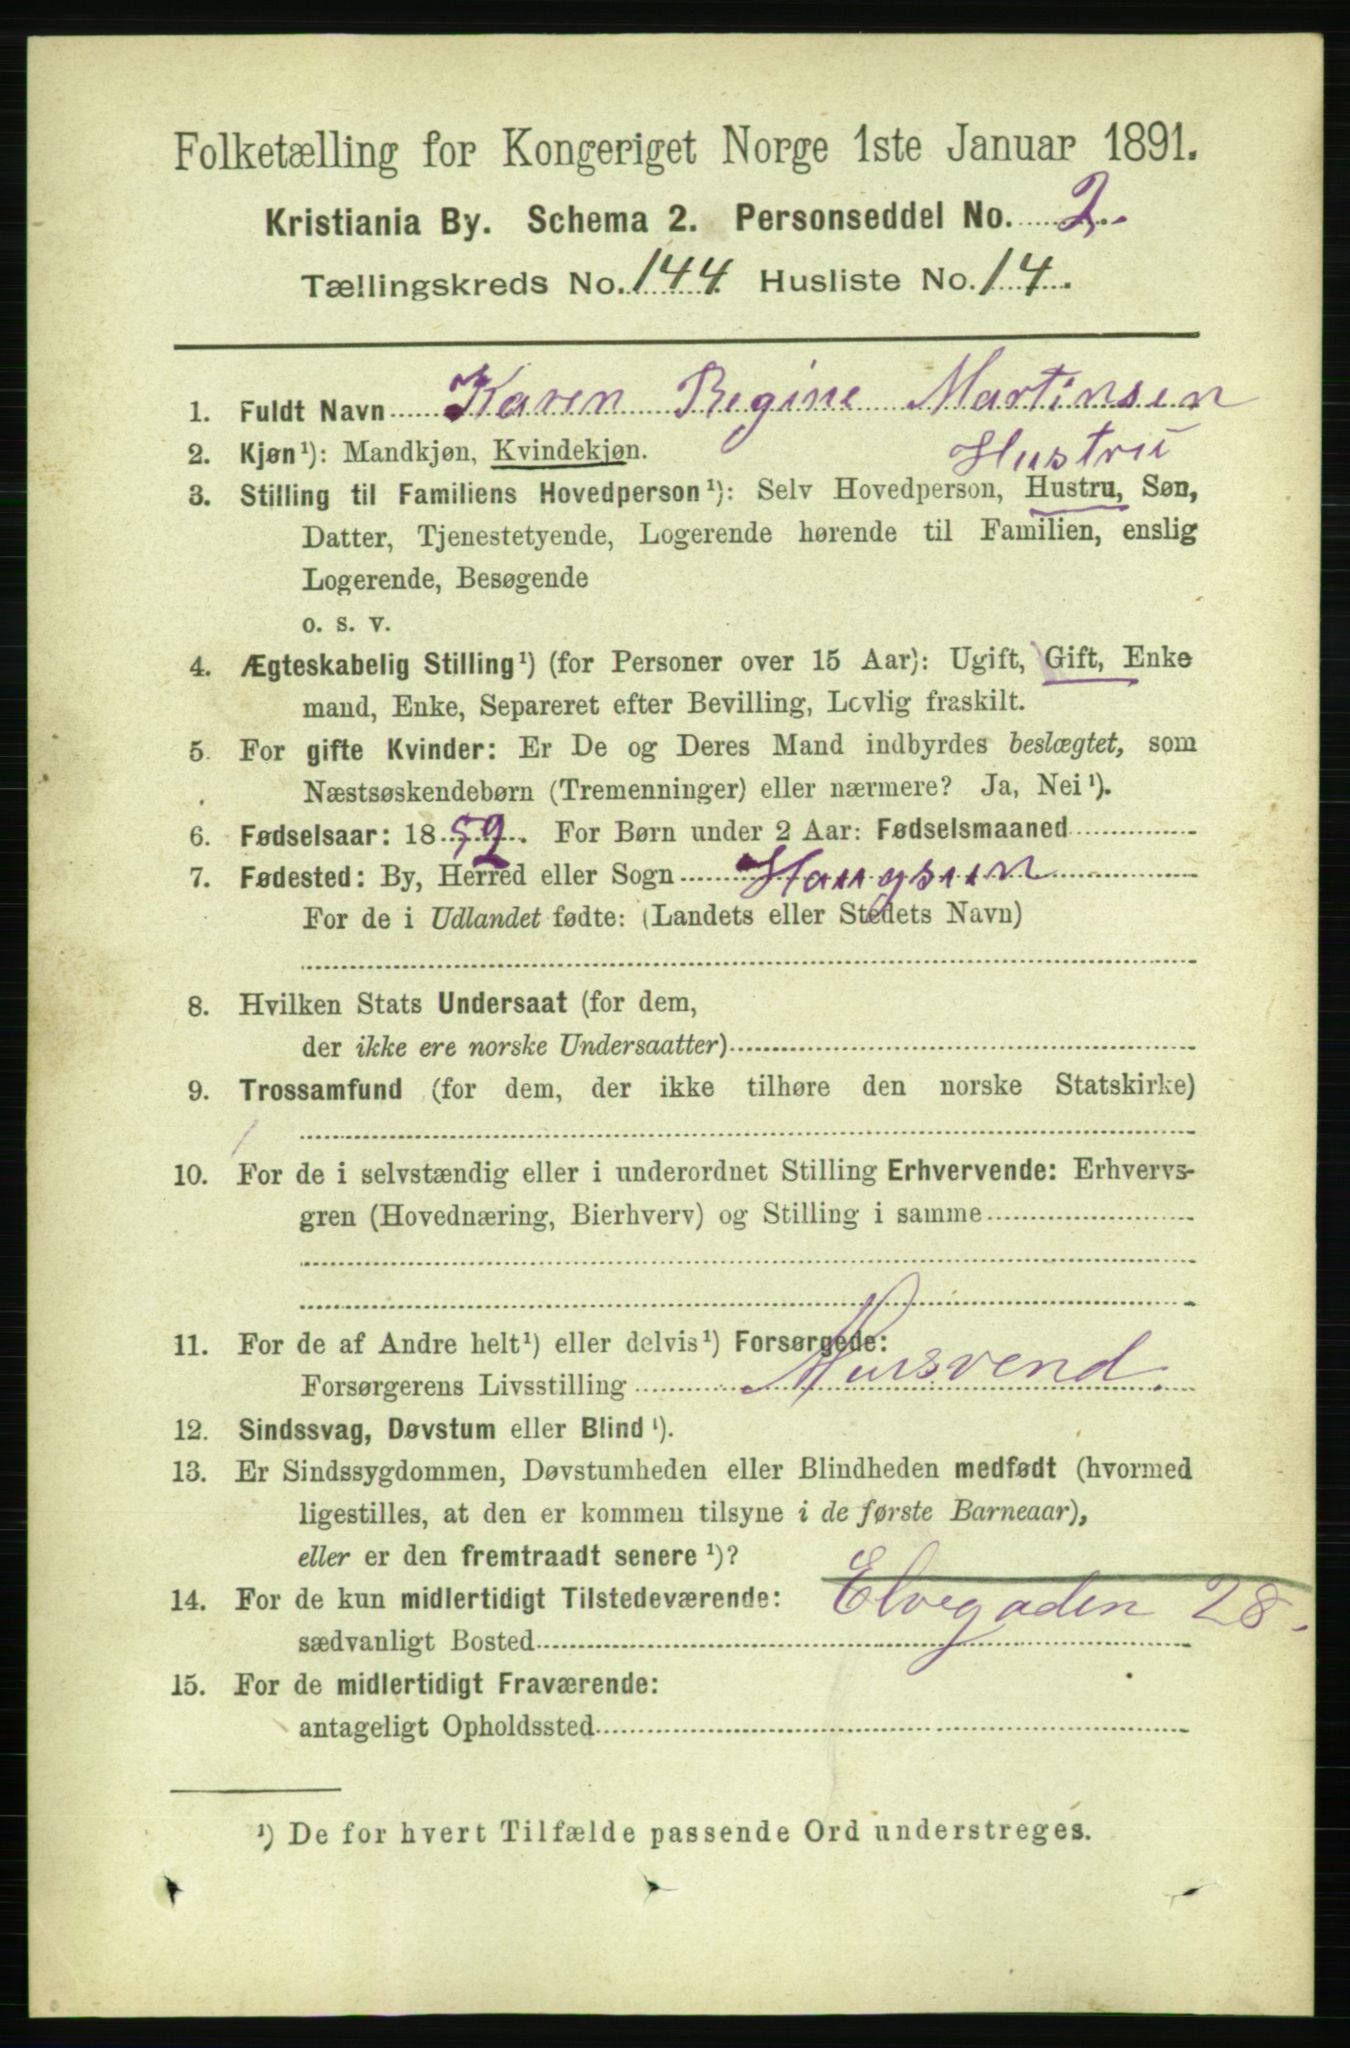 Folketælling for Kongeriget Norge 1ste Januar 1891.
Kristiania By. Schema 2. Personseddel No. 2.
Tællingskreds No. 144 Husliste No. 14.
1. Fuldt Navn Karen Regine Martinsen
2. Kjøn¹): Mandkjøn, Kvindekjøn. Hustru
3. Stilling til Familiens Hovedperson¹): Selv Hovedperson, Hustru, Søn,
Datter, Tjenestetyende, Logerende hørende til Familien, enslig
Logerende, Besøgende
o. s. v.
4. Ægteskabelig Stilling¹) (for Personer over 15 Aar): Ugift, Gift, Enke
mand, Enke, Separeret efter Bevilling, Lovlig fraskilt.
5. For gifte Kvinder: Er De og Deres Mand indbyrdes beslægtet, som
Næstsøskendebørn (Tremenninger) eller nærmere? Ja, Nei¹).
6. Fødselsaar: 1859. For Børn under 2 Aar: Fødselsmaaned
7. Fødested: By, Herred eller Sogn Haugsun
For de i Udlandet fødte: (Landets eller Stedets Navn)
8. Hvilken Stats Undersaat (for dem,
der ikke ere norske Undersaatter)
9. Trossamfund (for dem, der ikke tilhøre den norske Statskirke)
10. For de i selvstændig eller i underordnet Stilling Erhvervende: Erhvervs-
gren (Hovednæring, Bierhverv) og Stilling i samme
11. For de af Andre helt¹) eller delvis¹) Forsørgede:
Forsørgerens Livsstilling Mursvend.
12. Sindssvag, Døvstum eller Blind¹).
13. Er Sindssygdommen, Døvstumheden eller Blindheden medfødt (hvormed
ligestilles, at den er kommen tilsyne i de første Barneaar),
eller er den fremtraadt senere¹)?
14. For de kun midlertidigt Tilstedeværende: Elvegaden 28.
sædvanligt Bosted
15. For de midlertidigt Fraværende:
antageligt Opholdssted
¹) De for hvert Tilfælde passende Ord understreges.